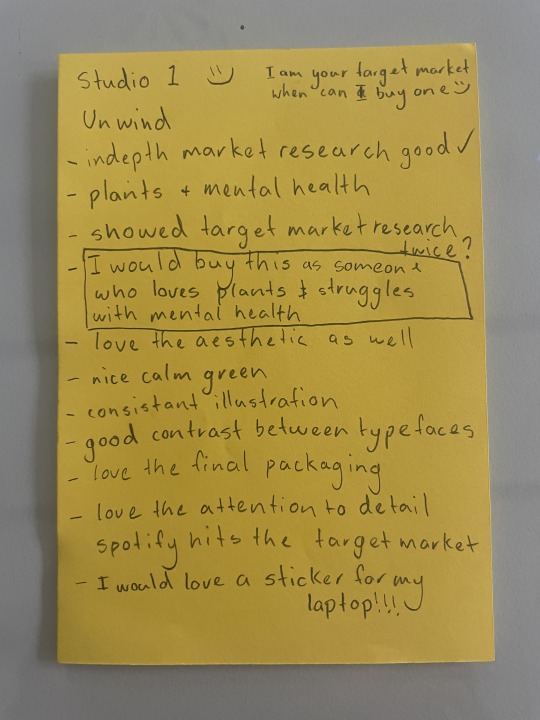 Studio 1
I am your target market
when can I buy one
Unwind
- indepth market research good ✓
- plants + mental health
- showed target market research
twice?
- I would buy this as someone
who loves plants & struggles
with mental health
- love the aesthetic as well
- nice calm green
- consistant illustration
- good contrast between typefaces
- love the final packaging
- love the attention to detail
spotify hits the target market
- I would love a sticker for my
laptop!!!